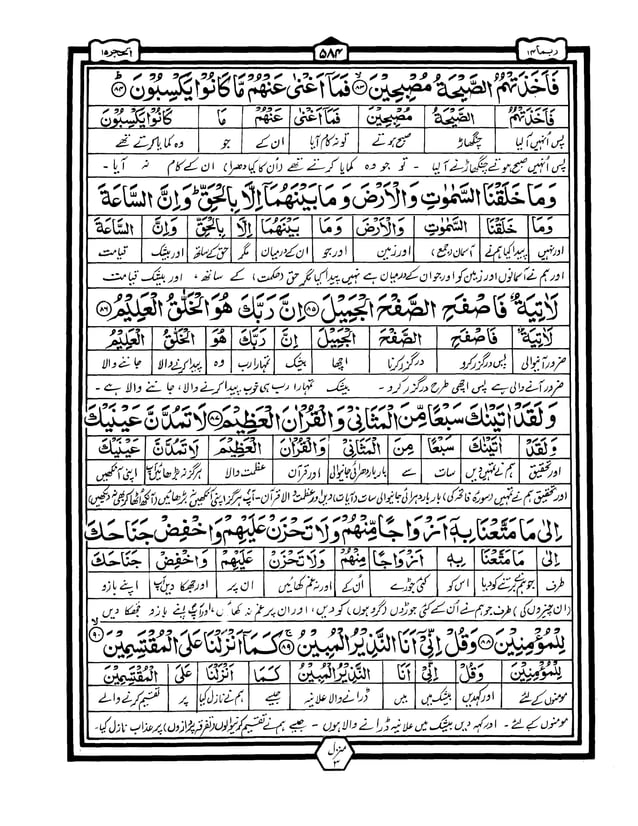 ربما ۱۴ ۵۸۴ الحجر ۱۵
فَاَخَذَتْهُمُ الصَّيْحَةُ مُصْبِحِيْنَ ﴿۸۳﴾ فَمَاۤ اَغْنٰى عَنْهُمْ مَّا كَانُوْا يَكْسِبُوْنَ ﴿۸۴﴾
فَاَخَذَتْهُمُ الصَّيْحَةُ مُصْبِحِيْنَ فَمَاۤ اَغْنٰى عَنْهُمْ مَا كَانُوْا يَكْسِبُوْنَ
پس انہیں آلیا چنگھاڑ صبح ہوتے تو نہ کام آیا ان کے جو وہ کمایا کرتے تھے
پس انہیں صبح ہوتے چنگھاڑ نے آلیا ۔ تو جو وہ کمایا کرتے تھے (اُن کا کیا دھرا) ان کے کام نہ آیا ۔
وَمَا خَلَقْنَا السَّمٰوٰتِ وَالْاَرْضَ وَمَا بَيْنَهُمَاۤ اِلَّا بِالْحَقِّ ؕ وَاِنَّ السَّاعَةَ
وَمَا خَلَقْنَا السَّمٰوٰتِ وَالْاَرْضَ وَمَا بَيْنَهُمَاۤ اِلَّا بِالْحَقِّ وَاِنَّ السَّاعَةَ
اور نہیں پیدا کیا ہم نے آسمان (جمع) اور زمین اور جو ان کے درمیان مگر حق کے ساتھ اور بیشک قیامت
اور ہم نے آسمانوں اور زمین کو اور جو ان کے درمیان ہے نہیں پیدا کیا مگر حق (حکمت) کے ساتھ ، اور بیشک قیامت
لَاٰتِيَةٌ فَاصْفَحِ الصَّفْحَ الْجَمِيْلَ ﴿۸۵﴾ اِنَّ رَبَّكَ هُوَ الْخَلّٰقُ الْعَلِيْمُ ﴿۸۶﴾
لَاٰتِيَةٌ فَاصْفَحِ الصَّفْحَ الْجَمِيْلَ اِنَّ رَبَّكَ هُوَ الْخَلّٰقُ الْعَلِيْمُ
ضرور آنیوالی پس درگزر کرو درگزر کرنا اچھا بیشک تمہارا رب وہ پیدا کرنے والا جاننے والا
ضرور آنے والی ہے پس اچھی طرح درگزر کرو ۔ بیشک تمہارا رب ہی خوب پیدا کرنے والا، جاننے والا ہے ۔
وَلَقَدْ اٰتَيْنٰكَ سَبْعًا مِّنَ الْمَثَانِيْ وَالْقُرْاٰنَ الْعَظِيْمَ ﴿۸۷﴾ لَا تَمُدَّنَّ عَيْنَيْكَ
وَلَقَدْ اٰتَيْنٰكَ سَبْعًا مِنَ الْمَثَانِيْ وَالْقُرْاٰنَ الْعَظِيْمَ لَا تَمُدَّنَّ عَيْنَيْكَ
اور تحقیق ہم نے تمہیں دیں سات سے بار بار دہرائی جانیوالی اور قرآن عظمت والا ہرگز نہ بڑھائیں آپ اپنی آنکھیں
اور تحقیق ہم نے تمہیں (سورہ فاتحہ کی) بار بار دہرائی جانیوالی سات (آیات) دیں اور عظمت والا قرآن ۔ آپ ہرگز اپنی آنکھیں نہ بڑھائیں (آنکھ اٹھا کر بھی نہ دیکھیں)
اِلٰى مَا مَتَّعْنَا بِهٖۤ اَزْوَاجًا مِّنْهُمْ وَلَا تَحْزَنْ عَلَيْهِمْ وَاخْفِضْ جَنَاحَكَ
اِلٰى مَا مَتَّعْنَا بِهٖ اَزْوَاجًا مِنْهُمْ وَلَا تَحْزَنْ عَلَيْهِمْ وَاخْفِضْ جَنَاحَكَ
طرف جو ہم نے برتنے کو دیا اس کو کئی جوڑے اُن کے اور نہ غم کھائیں ان پر اور جھکا دیں آپ اپنے بازو
(ان چیزوں کی) طرف جو ہم نے اُن کے کئی جوڑوں (گروہوں) کو دیں ، اور ان پر غم نہ کھائیں ، اور آپ اپنے بازو جھکا دیں
لِلْمُؤْمِنِيْنَ ﴿۸۸﴾ وَقُلْ اِنِّيْۤ اَنَا النَّذِيْرُ الْمُبِيْنُ ﴿۸۹﴾ كَمَاۤ اَنْزَلْنَا عَلَى الْمُقْتَسِمِيْنَ ﴿۹۰﴾
لِلْمُؤْمِنِيْنَ وَقُلْ اِنِّيْ اَنَا النَّذِيْرُ الْمُبِيْنُ كَمَا اَنْزَلْنَا عَلَى الْمُقْتَسِمِيْنَ
مومنوں کے لئے اور کہدیں بیشک میں میں ڈرانے والا علانیہ جیسے ہم نے نازل کیا پر تقسیم کرنے والے
مومنوں کے لئے ۔ اور کہہ دیں بیشک میں علانیہ ڈرانے والا ہوں ۔ جیسے ہم نے تقسیم کرنیوالوں (تفرقہ پردازوں) پر عذاب نازل کیا ۔
منزل ۳